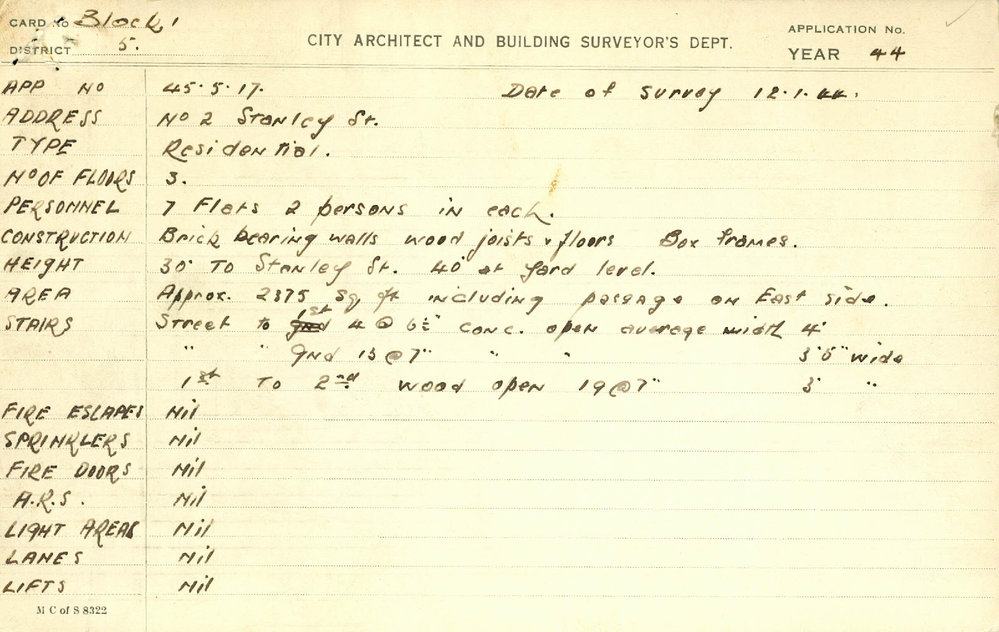 CARD No Block 1
DISTRICT 5.
CITY ARCHITECT AND BUILDING SURVEYOR'S DEPT.
APPLICATION No.
YEAR 44
APP NO 45.5.17. Date of survey 12.1.44.
ADDRESS No 2 Stanley St.
TYPE Residential.
No OF FLOORS 3.
PERSONNEL 7 Flats 2 persons in each.
CONSTRUCTION Brick bearing walls wood joists & floors Box frames.
HEIGHT 30' TO Stanley St. 40' at yard level.
AREA Approx. 2375 sq ft including passage on East side.
STAIRS Street to 1st 4 @ 6½" conc. open average width 4'
" " Gnd 13 @ 7" " " 3'5" wide
1st To 2nd wood open 19 @ 7" 3' "
FIRE ESCAPES Nil
SPRINKLERS Nil
FIRE DOORS Nil
A.R.S. Nil
LIGHT AREAS Nil
LANES Nil
LIFTS Nil
M C of S 8322